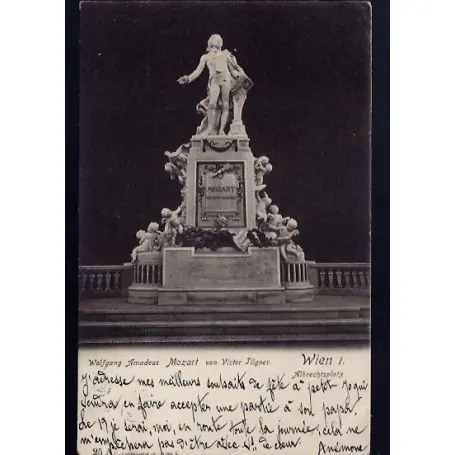 MOZART
Wolfgang Amadeus Mozart von Victor Tilgner.
Wien I.
Albrechtsplatz.
J'adresse mes meilleurs souhaits de fête à petit qui
voudra en faire accepter une partie à son papa.
Le 19 je serai, moi, en route toute la journée, cela ne
m'empêchera pas d'être avec de cœur.
Anémone
25